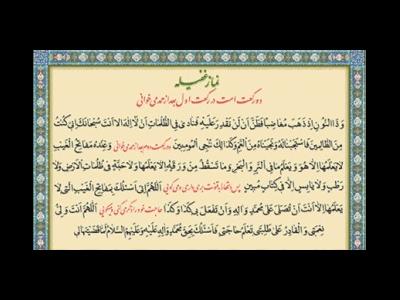 نماز غفیله
دو رکعت است در رکعت اول بعد از حمد می خوانی
وَ ذَا النُّونِ اِذْ ذَهَبَ مُغاضِباً فَظَنَّ اَنْ لَنْ نَقْدِرَ عَلَیْهِ فَنادی فِی الظُّلُماتِ اَنْ لا اِلهَ اِلاّ اَنْتَ سُبْحانَکَ اِنّی کُنْتُ
مِنَ الظّالِمینَ فَاسْتَجَبْنا لَهُ وَ نَجَّیْناهُ مِنَ الْغَمِّ وَ کَذلِکَ نُنْجِی الْمُؤْمِنینَ در رکعت دوم بعد از حمد می خوانی وَ عِنْدَهُ مَفاتِحُ الْغَیْبِ
لا یَعْلَمُها اِلاّ هُوَ وَ یَعْلَمُ ما فِی الْبَرِّ وَ الْبَحْرِ وَ ما تَسْقُطُ مِنْ وَرَقَةٍ اِلاّ یَعْلَمُها وَ لا حَبَّةٍ فی ظُلُماتِ الْاَرْضِ وَ لا
رَطْبٍ وَ لا یابِسٍ اِلاّ فی کِتابٍ مُبینٍ پس دستها را بقنوت برمی داری و می گویی اَللّهُمَّ اِنّی اَسْئَلُکَ بِمَفاتِحِ الْغَیْبِ الَّتی لا
یَعْلَمُها اِلاّ اَنْتَ اَنْ تُصَلِّیَ عَلی مُحَمَّدٍ وَ الِهِ وَ اَنْ تَفْعَلَ بی کَذا وَ کَذا حاجت خود را ذکر می کنی و میگویی اَللّهُمَّ اَنْتَ وَلِیُّ
نِعْمَتی وَ الْقادِرُ عَلی طَلِبَتی تَعْلَمُ حاجَتی فَاَسْئَلُکَ بِحَقِّ مُحَمَّدٍ وَ الِهِ عَلَیْهِ وَ عَلَیْهِمُ السَّلامُ لَمّا قَضَیْتَها لی